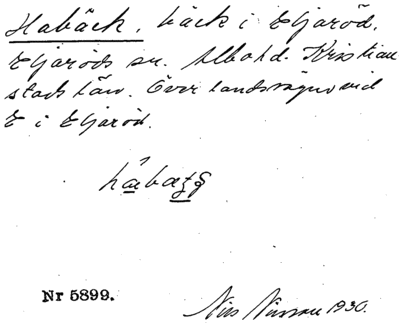 Habäck, bäck i Eljaröd,
Eljaröds sn. Albo hd. Kristian
stads län. Över landsvägen vid
E i Eljaröd.
Nr 5899.
Nils Nilsson 1930.